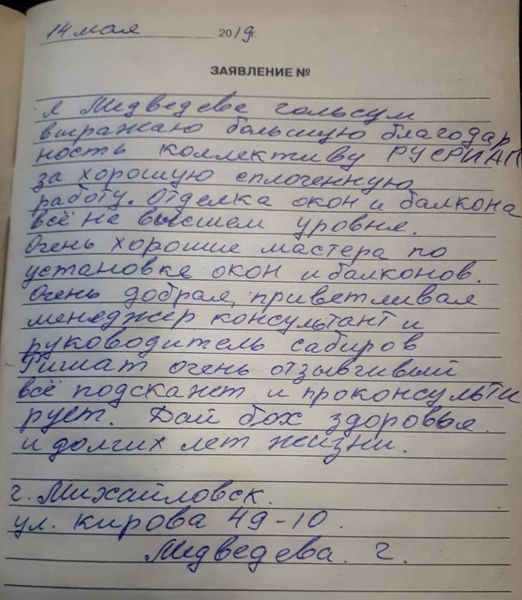 14 мая 2019г.
ЗАЯВЛЕНИЕ №
Я Медведева гольсум
выражаю большую благодар
ность коллективу РУСРИАП
за хорошую сплоченную
работу. Отделка окон и балкона
всё не высшем уровня.
Очень хорошие мастера по
установке окон и балконов.
Очень добрая, приветливая
менеджер консультант и
руководитель сабиров
Ришат очень отзывчивый
всё подскажет и проконсульти
рует. Дай бох здоровья
и долгих лет жизни.
г. Михайловск.
ул. кирова 49-10.
Медведева. г.